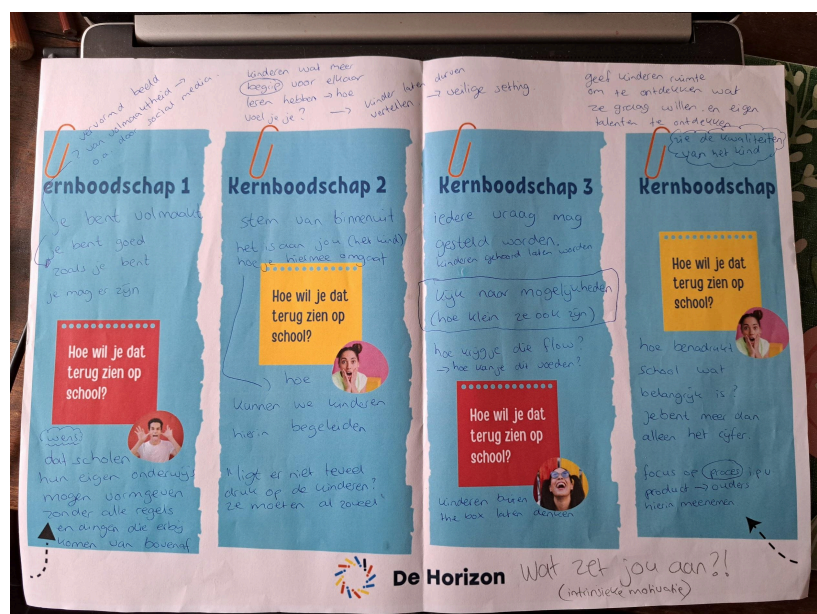 vervormd beeld
van volmaaktheid →
o.a. door social media.
kinderen wat meer
begrip voor elkaar
leren hebben → hoe
voel je je? → kinder laten durven
vertellen → veilige setting.
geef kinderen ruimte
om te ontdekken wat
ze graag willen en eigen
talenten te ontdekken
zie de kwaliteiten
van het kind
ernboodschap 1
je bent volmaakt
je bent goed
zoals je bent
je mag er zijn
Hoe wil je dat
terug zien op
school?
wens
dat scholen
hun eigen onderwijs
mogen vormgeven
zonder alle regels
en dingen die erbij
komen van bovenaf
Kernboodschap 2
stem van binnenuit
het is aan jou (het kind)
hoe je hiermee omgaat
Hoe wil je dat
terug zien op
school?
hoe
kunnen we kinderen
hierin begeleiden
ligt er niet teveel
druk op de kinderen?
ze moeten al zoveel.
Kernboodschap 3
iedere vraag mag
gesteld worden,
kinderen gehoord laten worden
kijk naar mogelijkheden
(hoe klein ze ook zijn)
hoe krijg je die flow?
→ hoe kan je du voeden?
Hoe wil je dat
terug zien op
school?
kinderen buiten
the box laten denken
Kernboodschap
Hoe wil je dat
terug zien op
school?
hoe benadrukt
school wat
belangrijk is?
je bent meer dan
alleen het cijfer.
focus op proces i.p.v
product → ouders
hierin meenemen
De Horizon
Wat zet jou aan?!
(intrinsieke motivatie)